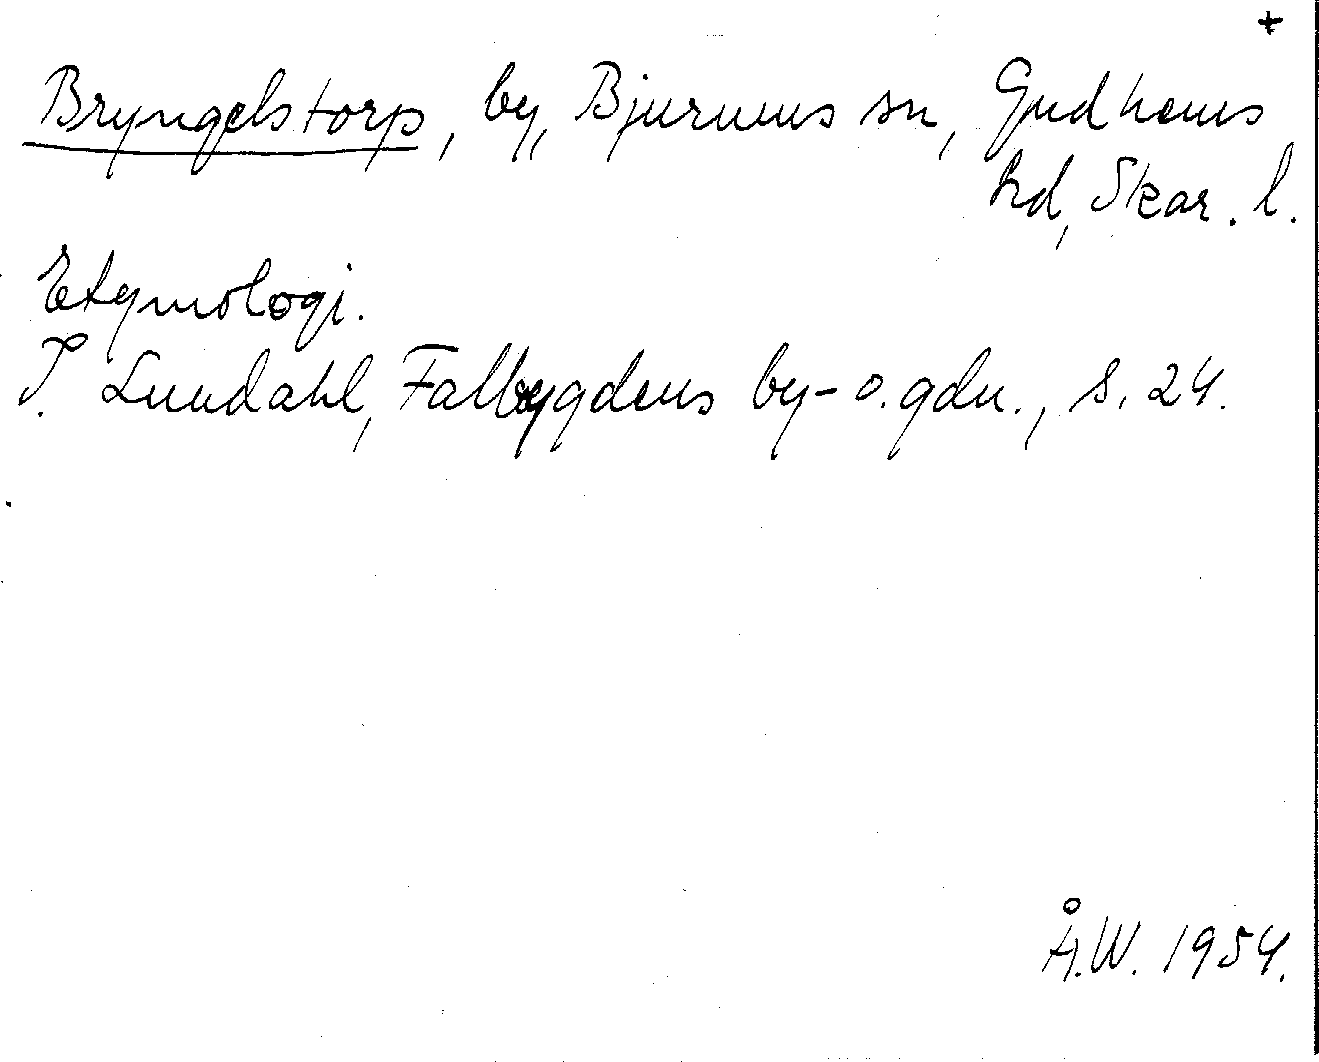 +
Bryngelstorp, by, Bjurums sn, Gudhems
hd, Skar. l.
Etymologi.
I. Lundahl, Falbygdens by- o. gdn., s. 24.
Å.W. 1954.